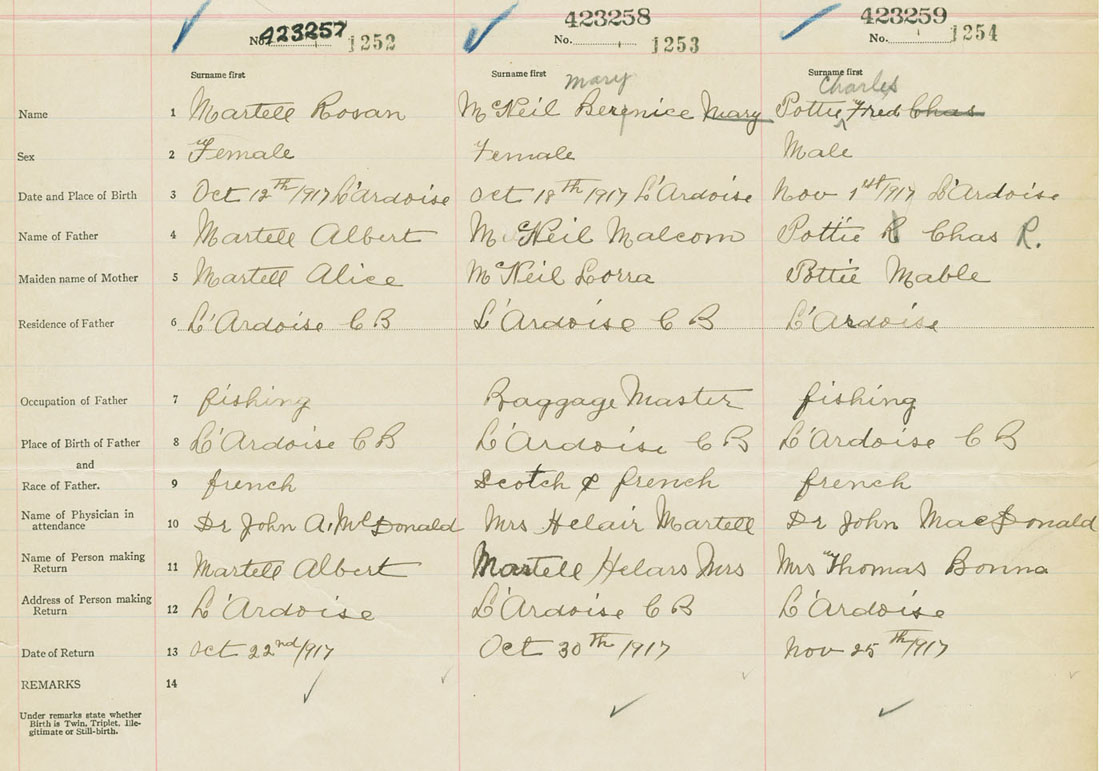 423257 423258 423259
No. 1252 No. 1253 No. 1254
Surname first Surname first Surname first
Mary Charles
Name 1 Martell Rosan McNeil Berenice Mary Pottie Fred Chas
Sex 2 Female Female Male
Date and Place of Birth 3 Oct 12th/1917 L'Ardoise Oct 18th 1917 L'Ardoise Nov 1st/1917 L'Ardoise
Name of Father 4 Martell Albert McNeil Malcom Pottie R Chas R.
Maiden name of Mother 5 Martell Alice McNeil Lorra Pottie Mable
Residence of Father 6 L'Ardoise C B L'Ardoise C B L'Ardoise
Occupation of Father 7 fishing Baggage Master fishing
Place of Birth of Father 8 L'Ardoise C B L'Ardoise C B L'Ardoise C B
and
Race of Father. 9 french Scotch & french french
Name of Physician in
attendance 10 Dr John A. McDonald Mrs Helair Martell Dr John MacDonald
Name of Person making
Return 11 Martell Albert Martell Helars Mrs Mrs Thomas Bonna
Address of Person making
Return 12 L'Ardoise L'Ardoise C B L'Ardoise
Date of Return 13 Oct 22nd/1917 Oct 30th/1917 Nov 25th/1917
REMARKS 14
Under remarks state whether
Birth is Twin, Triplet, Ille-
gitimate or Still-birth.